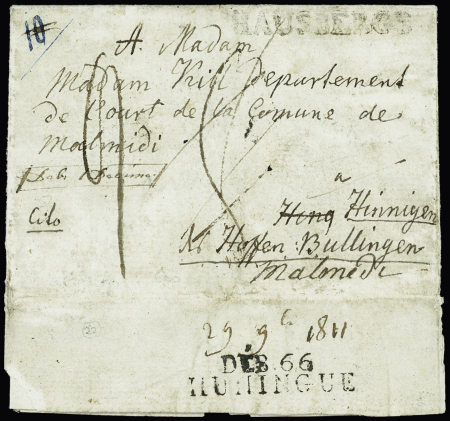 10
HAUSBERGS
A Madam
Madam Kill Departement
de Court de la Comune de
Malmidi
Cito
a
Hinnigen
Hoffen Bullingen
Malmedi
29 9 1811
DÉB. 66
HUNINGUE